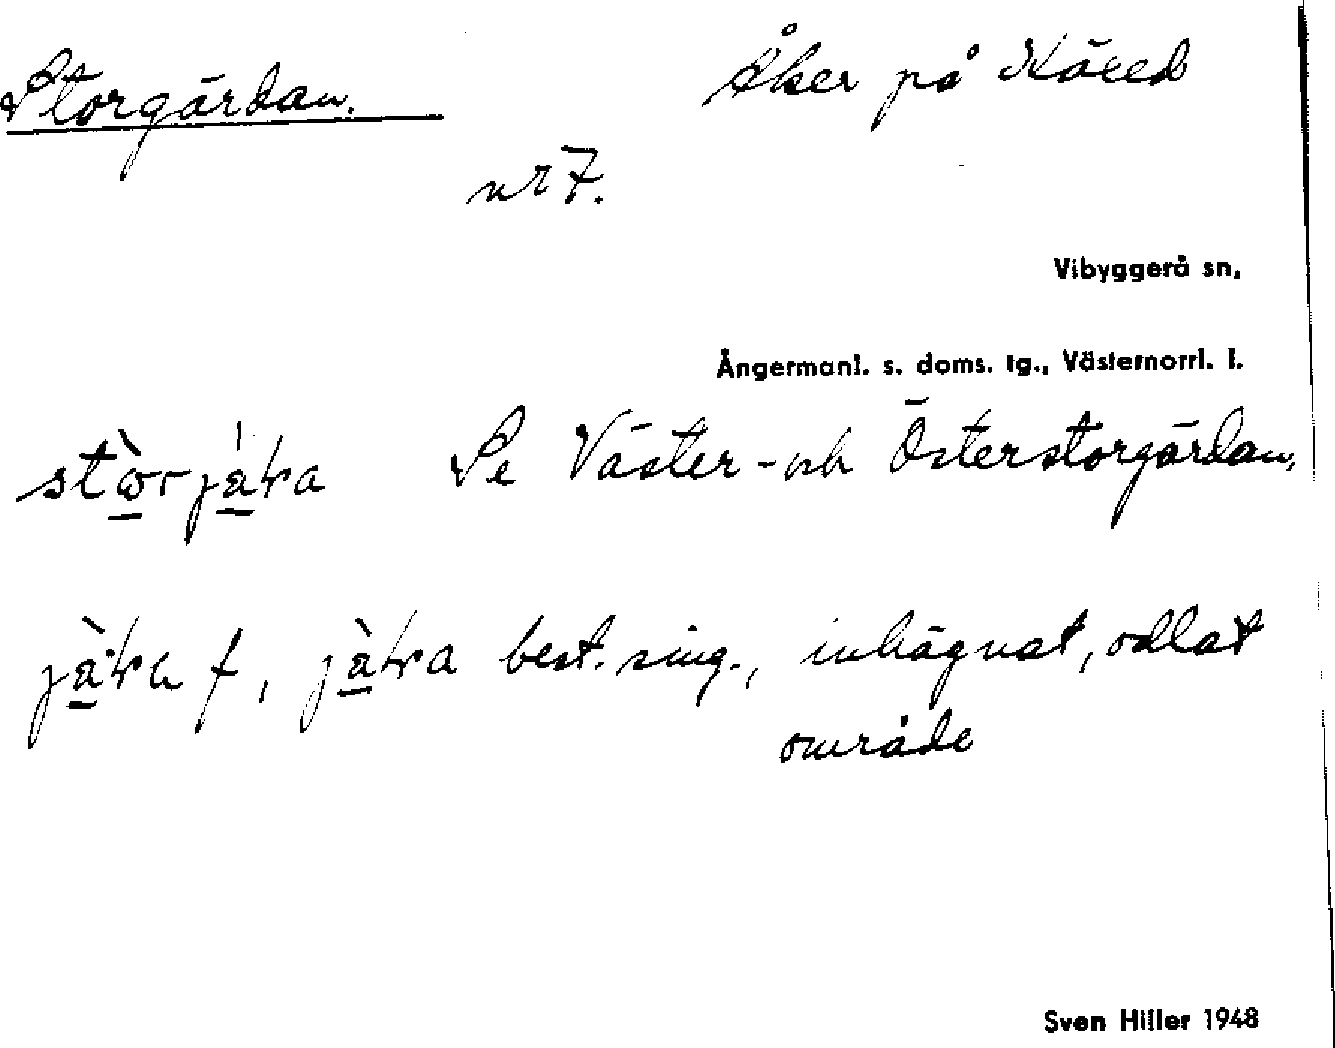 Storgärdan. Åker på Käxed
nr 7.
Vibyggerå sn.
Ångermanl. s. doms. tg., Västernorrl. l.
Se Väster- och Österstorgärdan.
f, best. sing., inhägnat, odlat
område
Sven Hiller 1948